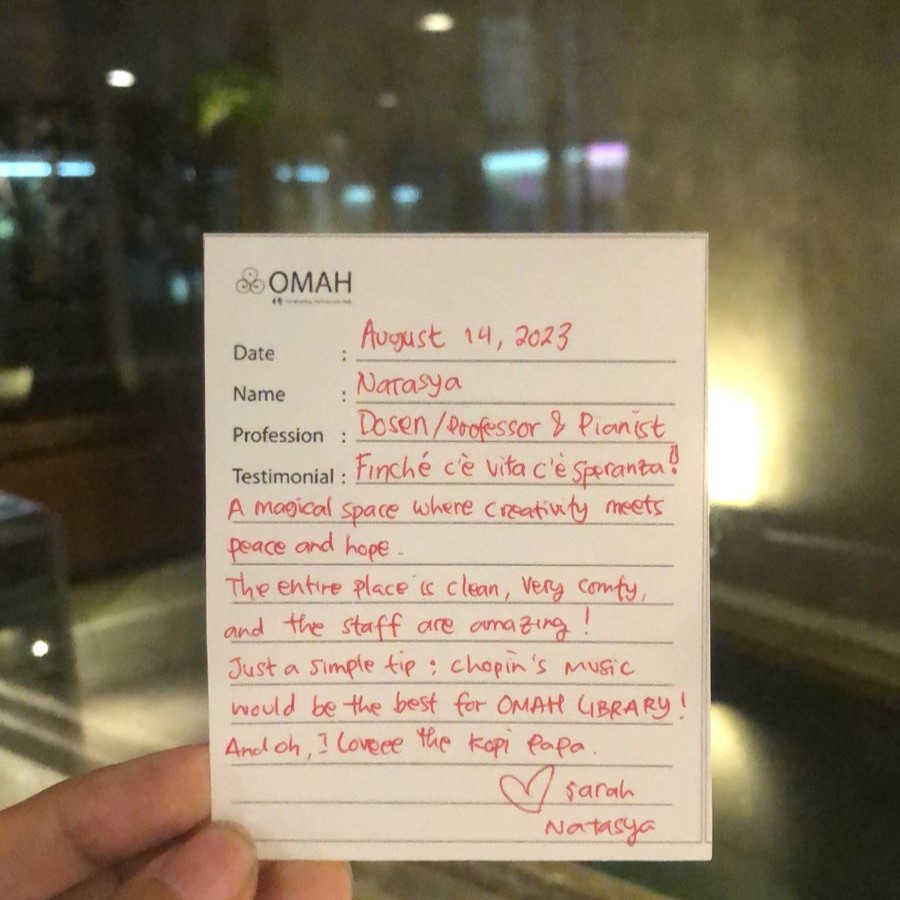 OMAH
Date : August 14, 2023
Name : Natasya
Profession : Dosen/Professor & Pianist
Testimonial : Finché c'è vita c'è speranza!
A magical space where creativity meets
peace and hope.
The entire place is clean, very comfy,
and the staff are amazing!
Just a simple tip : Chopin's music
would be the best for OMAH LIBRARY!
And oh, I loveee the kopi papa.
Sarah
Natasya